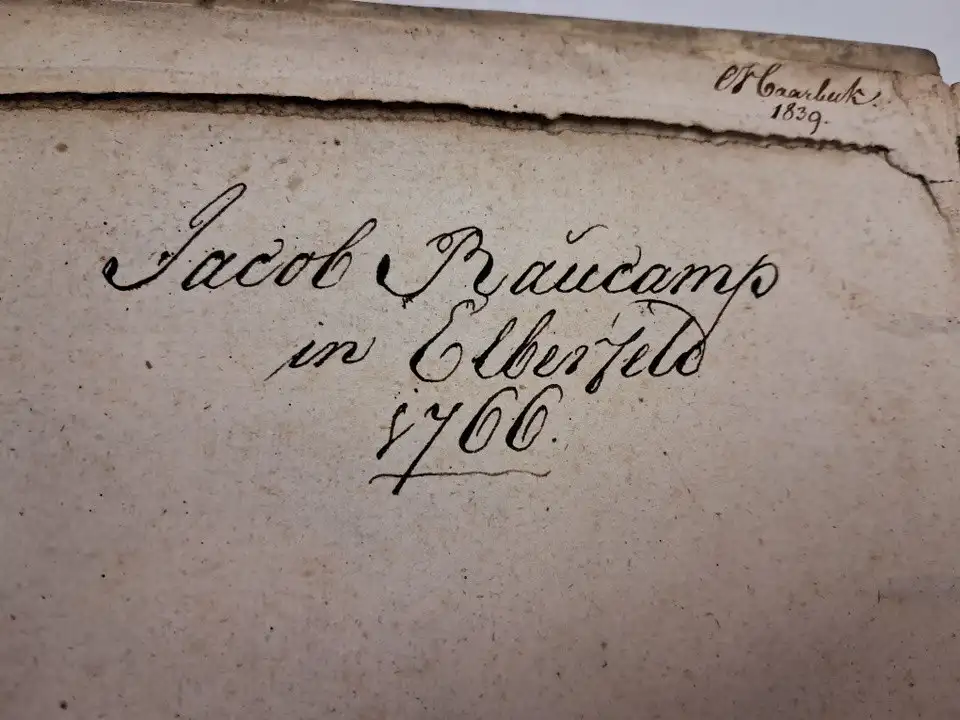 1839.
Jacob Raucamp
in Elberfeld
1766.